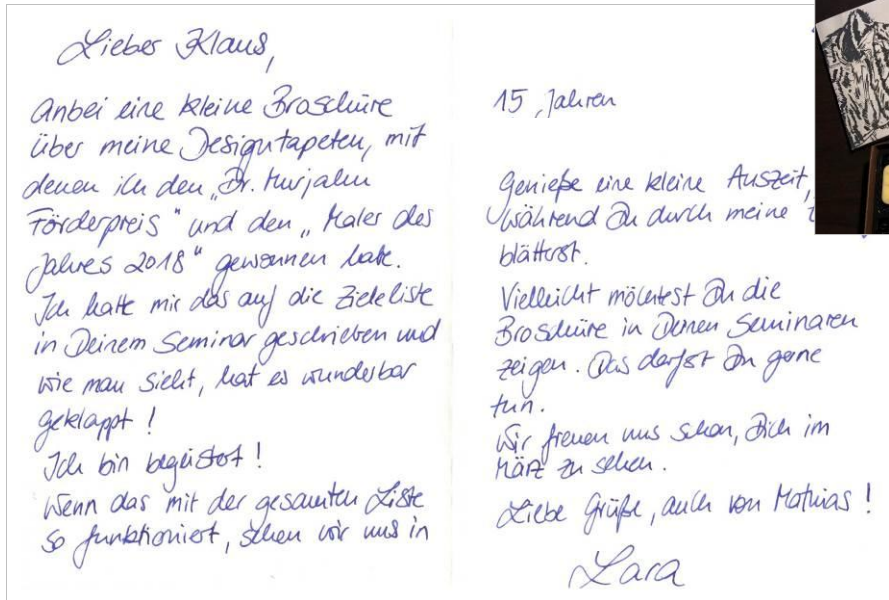 Lieber Klaus,
anbei eine kleine Broschüre
über meine Designtapeten, mit
denen ich den „Dr. Murjahn
Förderpreis" und den „Maler des
Jahres 2018" gewonnen habe.
Ich hatte mir das auf die Zieleliste
in Deinem Seminar geschrieben und
wie man sieht, hat es wunderbar
geklappt!
Ich bin begeistert!
Wenn das mit der gesamten Liste
so funktioniert, sehen wir uns in
15 Jahren
Genieße eine kleine Auszeit,
während Du durch meine
blätterst.
Vielleicht möchtest Du die
Broschüre in Deinen Seminaren
zeigen. Das darfst Du gerne
tun.
Wir freuen uns schon, Dich im
März zu sehen.
Liebe Grüße, auch von Mathias!
Lara